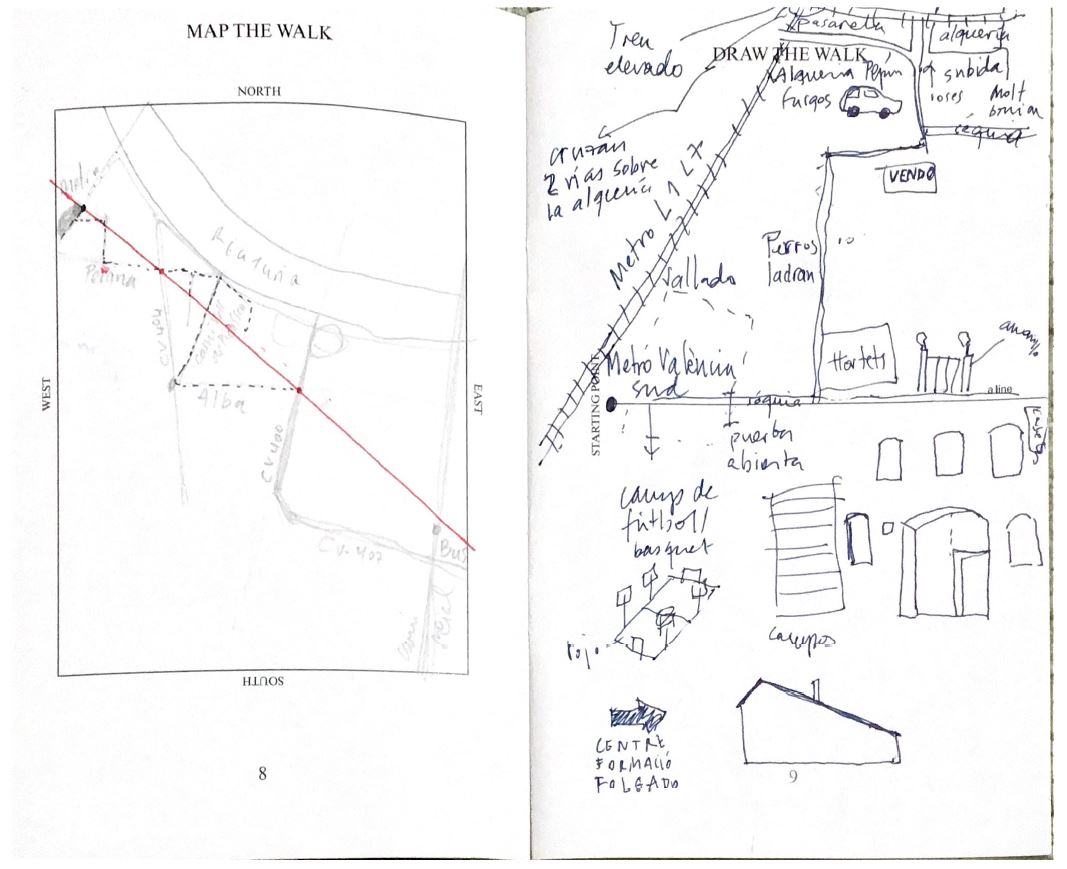 MAP THE WALK
NORTH
WEST
EAST
SOUTH
Paterna
CV 404
Alba
CV 400
CV-407
Bus
8
DRAW THE WALK
Tren
elevado
pasarella
alquería
Alqueria Pepín
furgos
subida
Molt
cruzan
2 vías sobre
la alquería
Metro L1 L7
VENDO
Perros
ladran
Vallado
Hortets
Metro València
sud
STARTING POINT
a line
séquia
puerta
abierta
camps de
fútbol/
basquet
rojo
campos
CENTRE
FORMACIÓ
FOLGADO
9